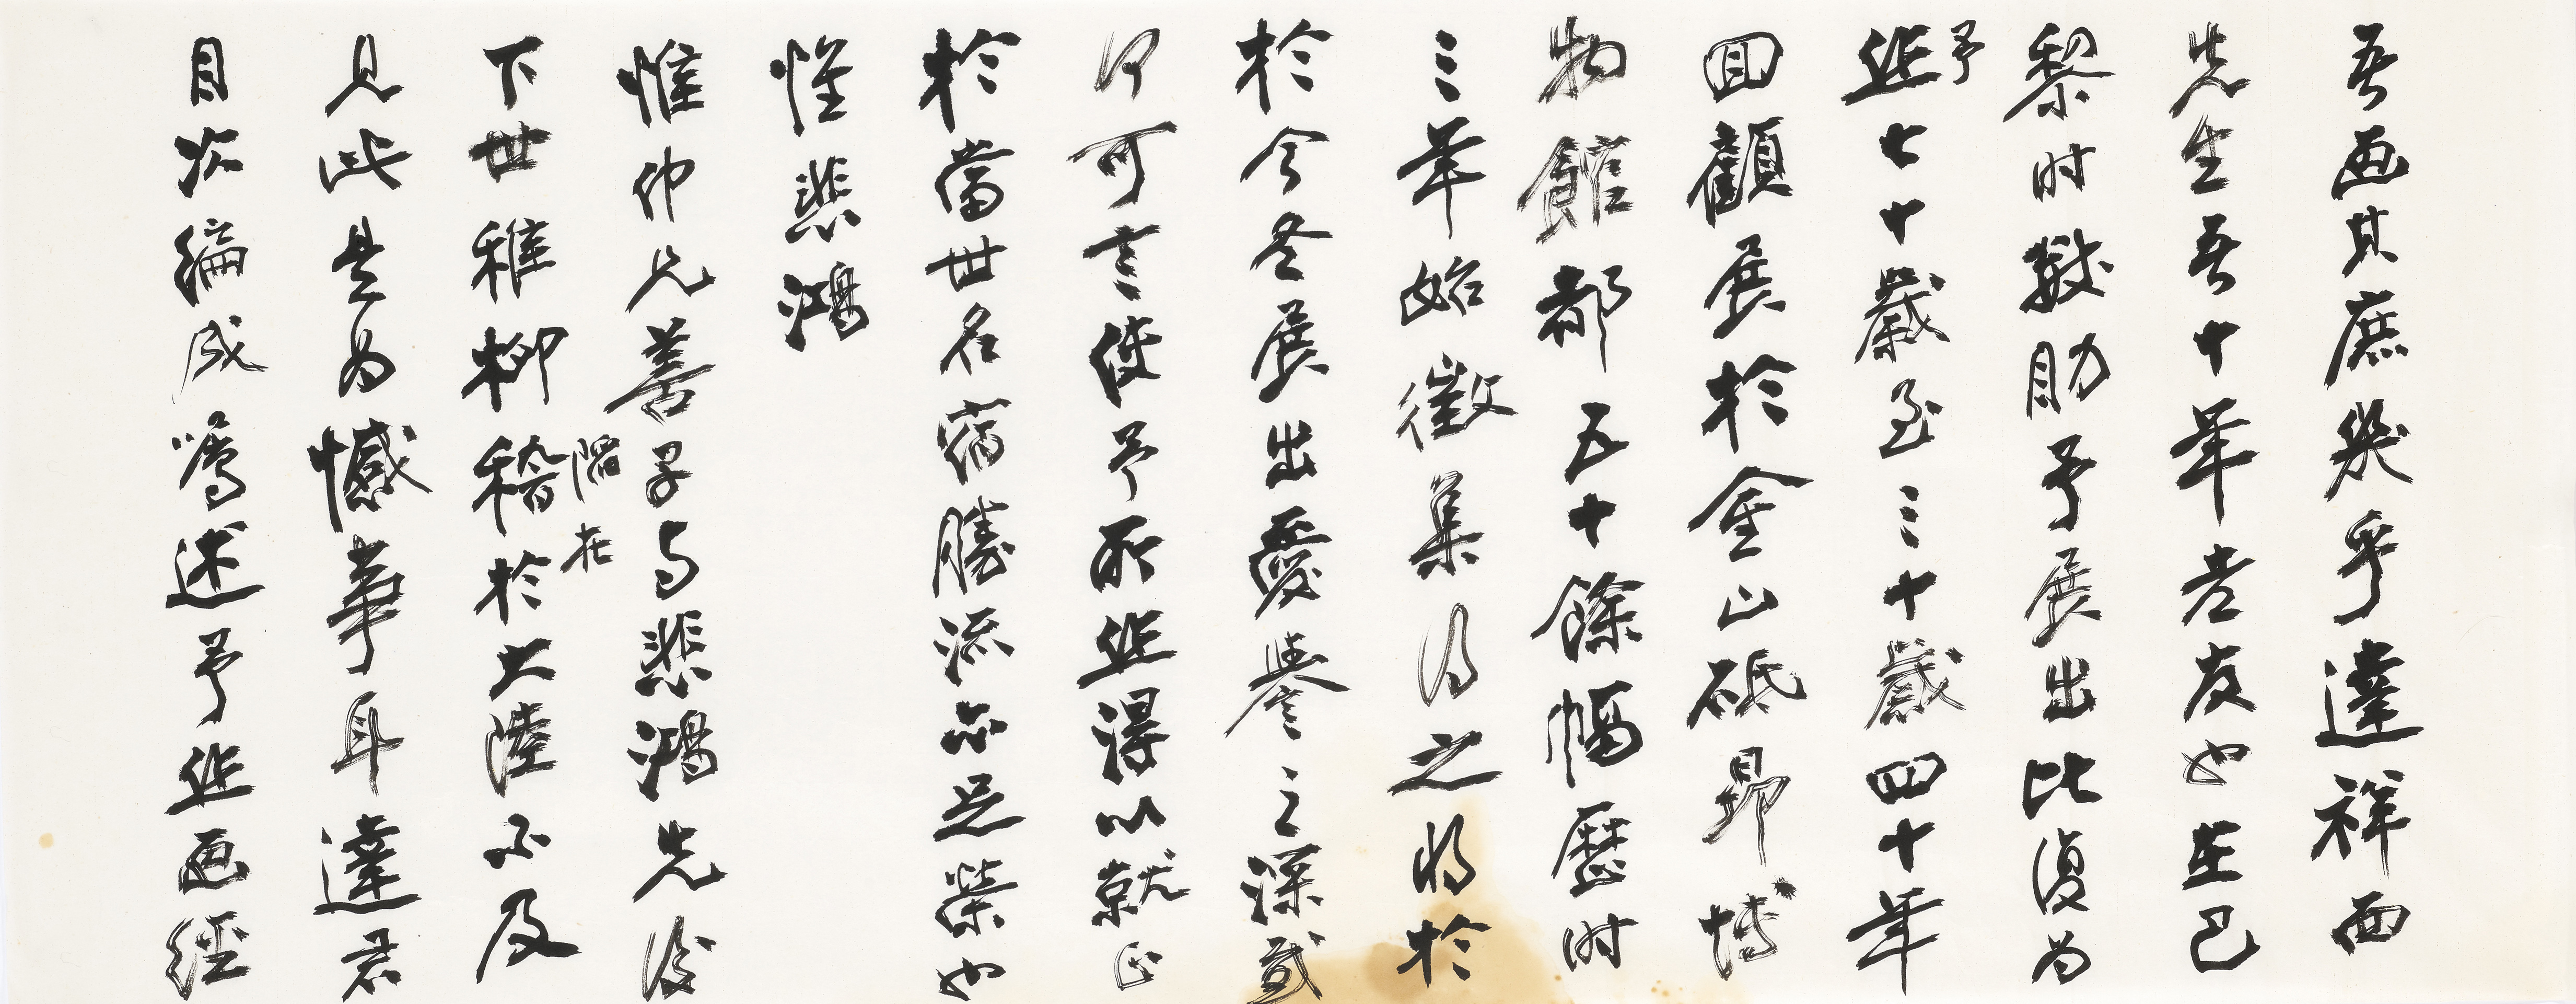 吾画其庶幾乎達祥而
先生吾十年老友也在巴
黎时數助予展出比復为
予作七十歲至三十歲四十年
回顧展於金山砥昻博
物館都五十餘幅歷时
三年始徵集得之将於
於今冬展出愛譽之深感
何可言使予所作得以就正
於當世名宿勝流亦足榮也
惟悲鴻
惟仲兄善子与悲鴻先後
陷在
下世稚柳稽於大陸不及
見此是为憾事耳達君
目次編成嘱述予作画经